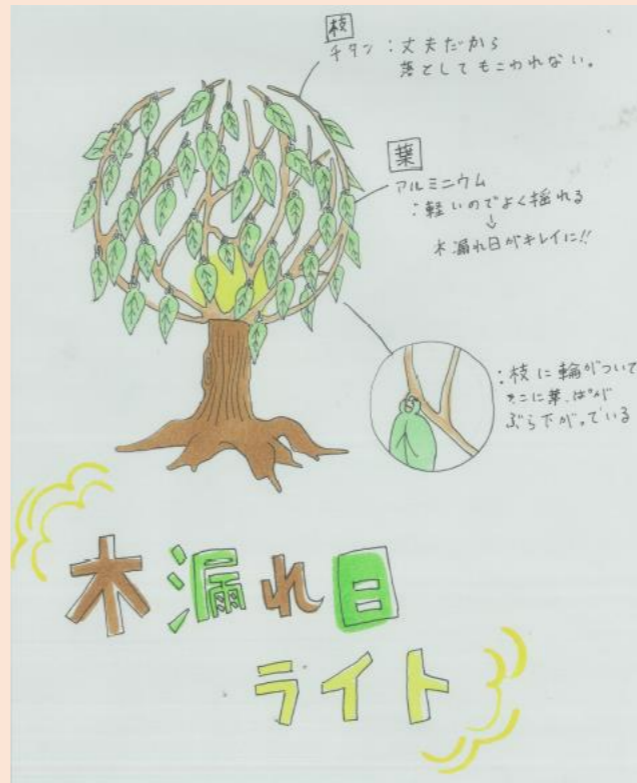 枝
チタン:丈夫だから
落としてもこわれない。
葉
アルミニウム
:軽いのでよく揺れる
↓
木漏れ日がキレイに!!
:枝に輪がついて
そこに葉っぱが
ぶら下がっている
木漏れ日
ライト